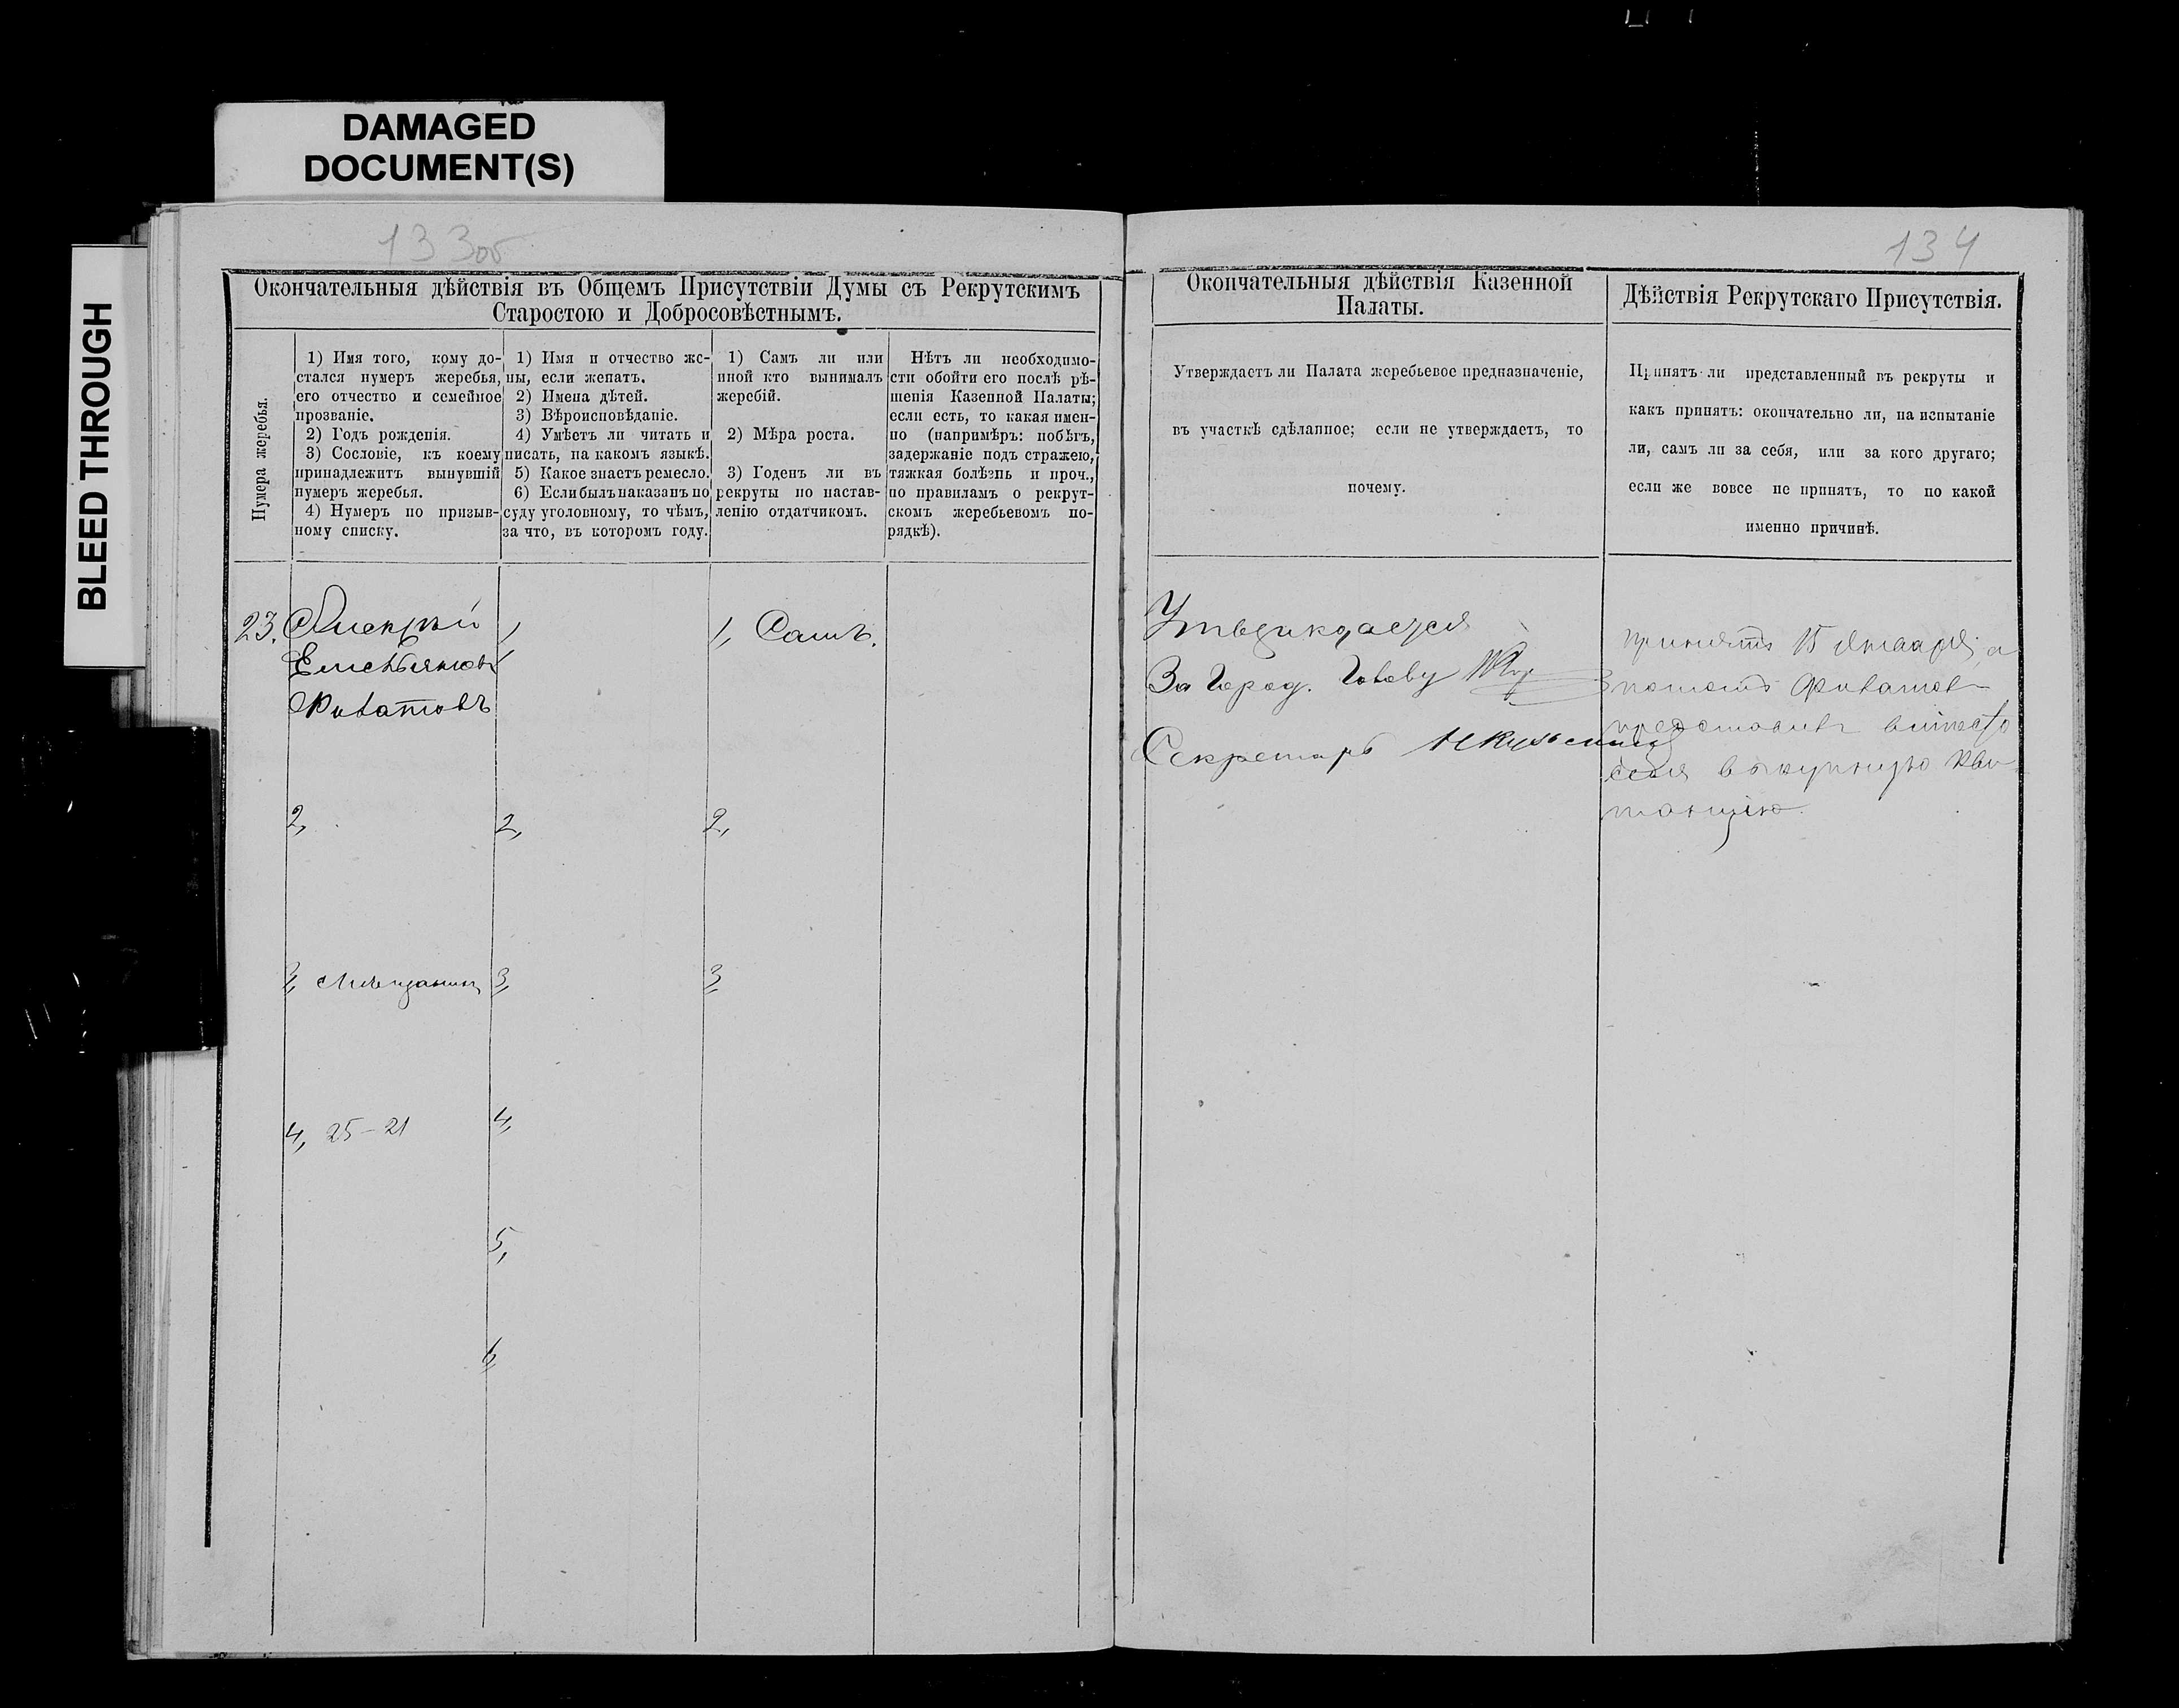 DAMAGED
DOCUMENT(S)
BLEED THROUGH
133об
134
Окончательныя дѣйствія въ Общемъ Присутствіи Думы съ Рекрутскимъ
Старостою и Добросовѣстнымъ.
Нумера жеребья.
1) Имя того, кому до-
стался нумеръ жеребья,
его отчество и семейное
прозваніе.
2) Годъ рожденія.
3) Сословіе, къ коему
принадлежитъ вынувшій
нумеръ жеребья.
4) Нумеръ по призыв-
ному списку.
1) Имя и отчество же-
ны, если женатъ.
2) Имена дѣтей.
3) Вѣроисповѣданіе.
4) Умѣетъ ли читать и
писать, на какомъ языкѣ.
5) Какое знаетъ ремесло.
6) Если былъ наказанъ по
суду уголовному, то чѣмъ,
за что, въ которомъ году.
1) Самъ ли или
иной кто вынималъ
жеребій.
2) Мѣра роста.
3) Годенъ ли въ
рекруты по настав-
ленію отдатчикомъ.
Нѣтъ ли необходимо-
сти обойти его послѣ рѣ-
шенія Казенной Палаты;
если есть, то какая имен-
но (напримѣръ: побѣгъ,
задержаніе подъ стражею,
тяжкая болѣзнь и проч.,
по правиламъ о рекрут-
скомъ жеребьевомъ по-
рядкѣ).
Окончательныя дѣйствія Казенной
Палаты.
Утверждаетъ ли Палата жеребьевое предназначеніе,
въ участкѣ сдѣланное; если не утверждаетъ, то
почему.
Дѣйствія Рекрутскаго Присутствія.
Принятъ-ли представленный въ рекруты и
какъ принятъ: окончательно ли, на испытаніе
ли, самъ ли за себя, или за кого другаго;
если же вовсе не принятъ, то по какой
именно причинѣ.
23. Алексѣй
Емельяновъ
Филатовъ
2,
3, Мѣщанинъ
4, 25–21
1,
2,
3,
4,
5,
6,
1, Самъ.
2,
3,
Утверждается
За Город. Голову
Секретарь
Принятъ 15 Января, а
потомъ Филатовъ
представилъ вмѣсто
себя выкупную кви-
танцію.